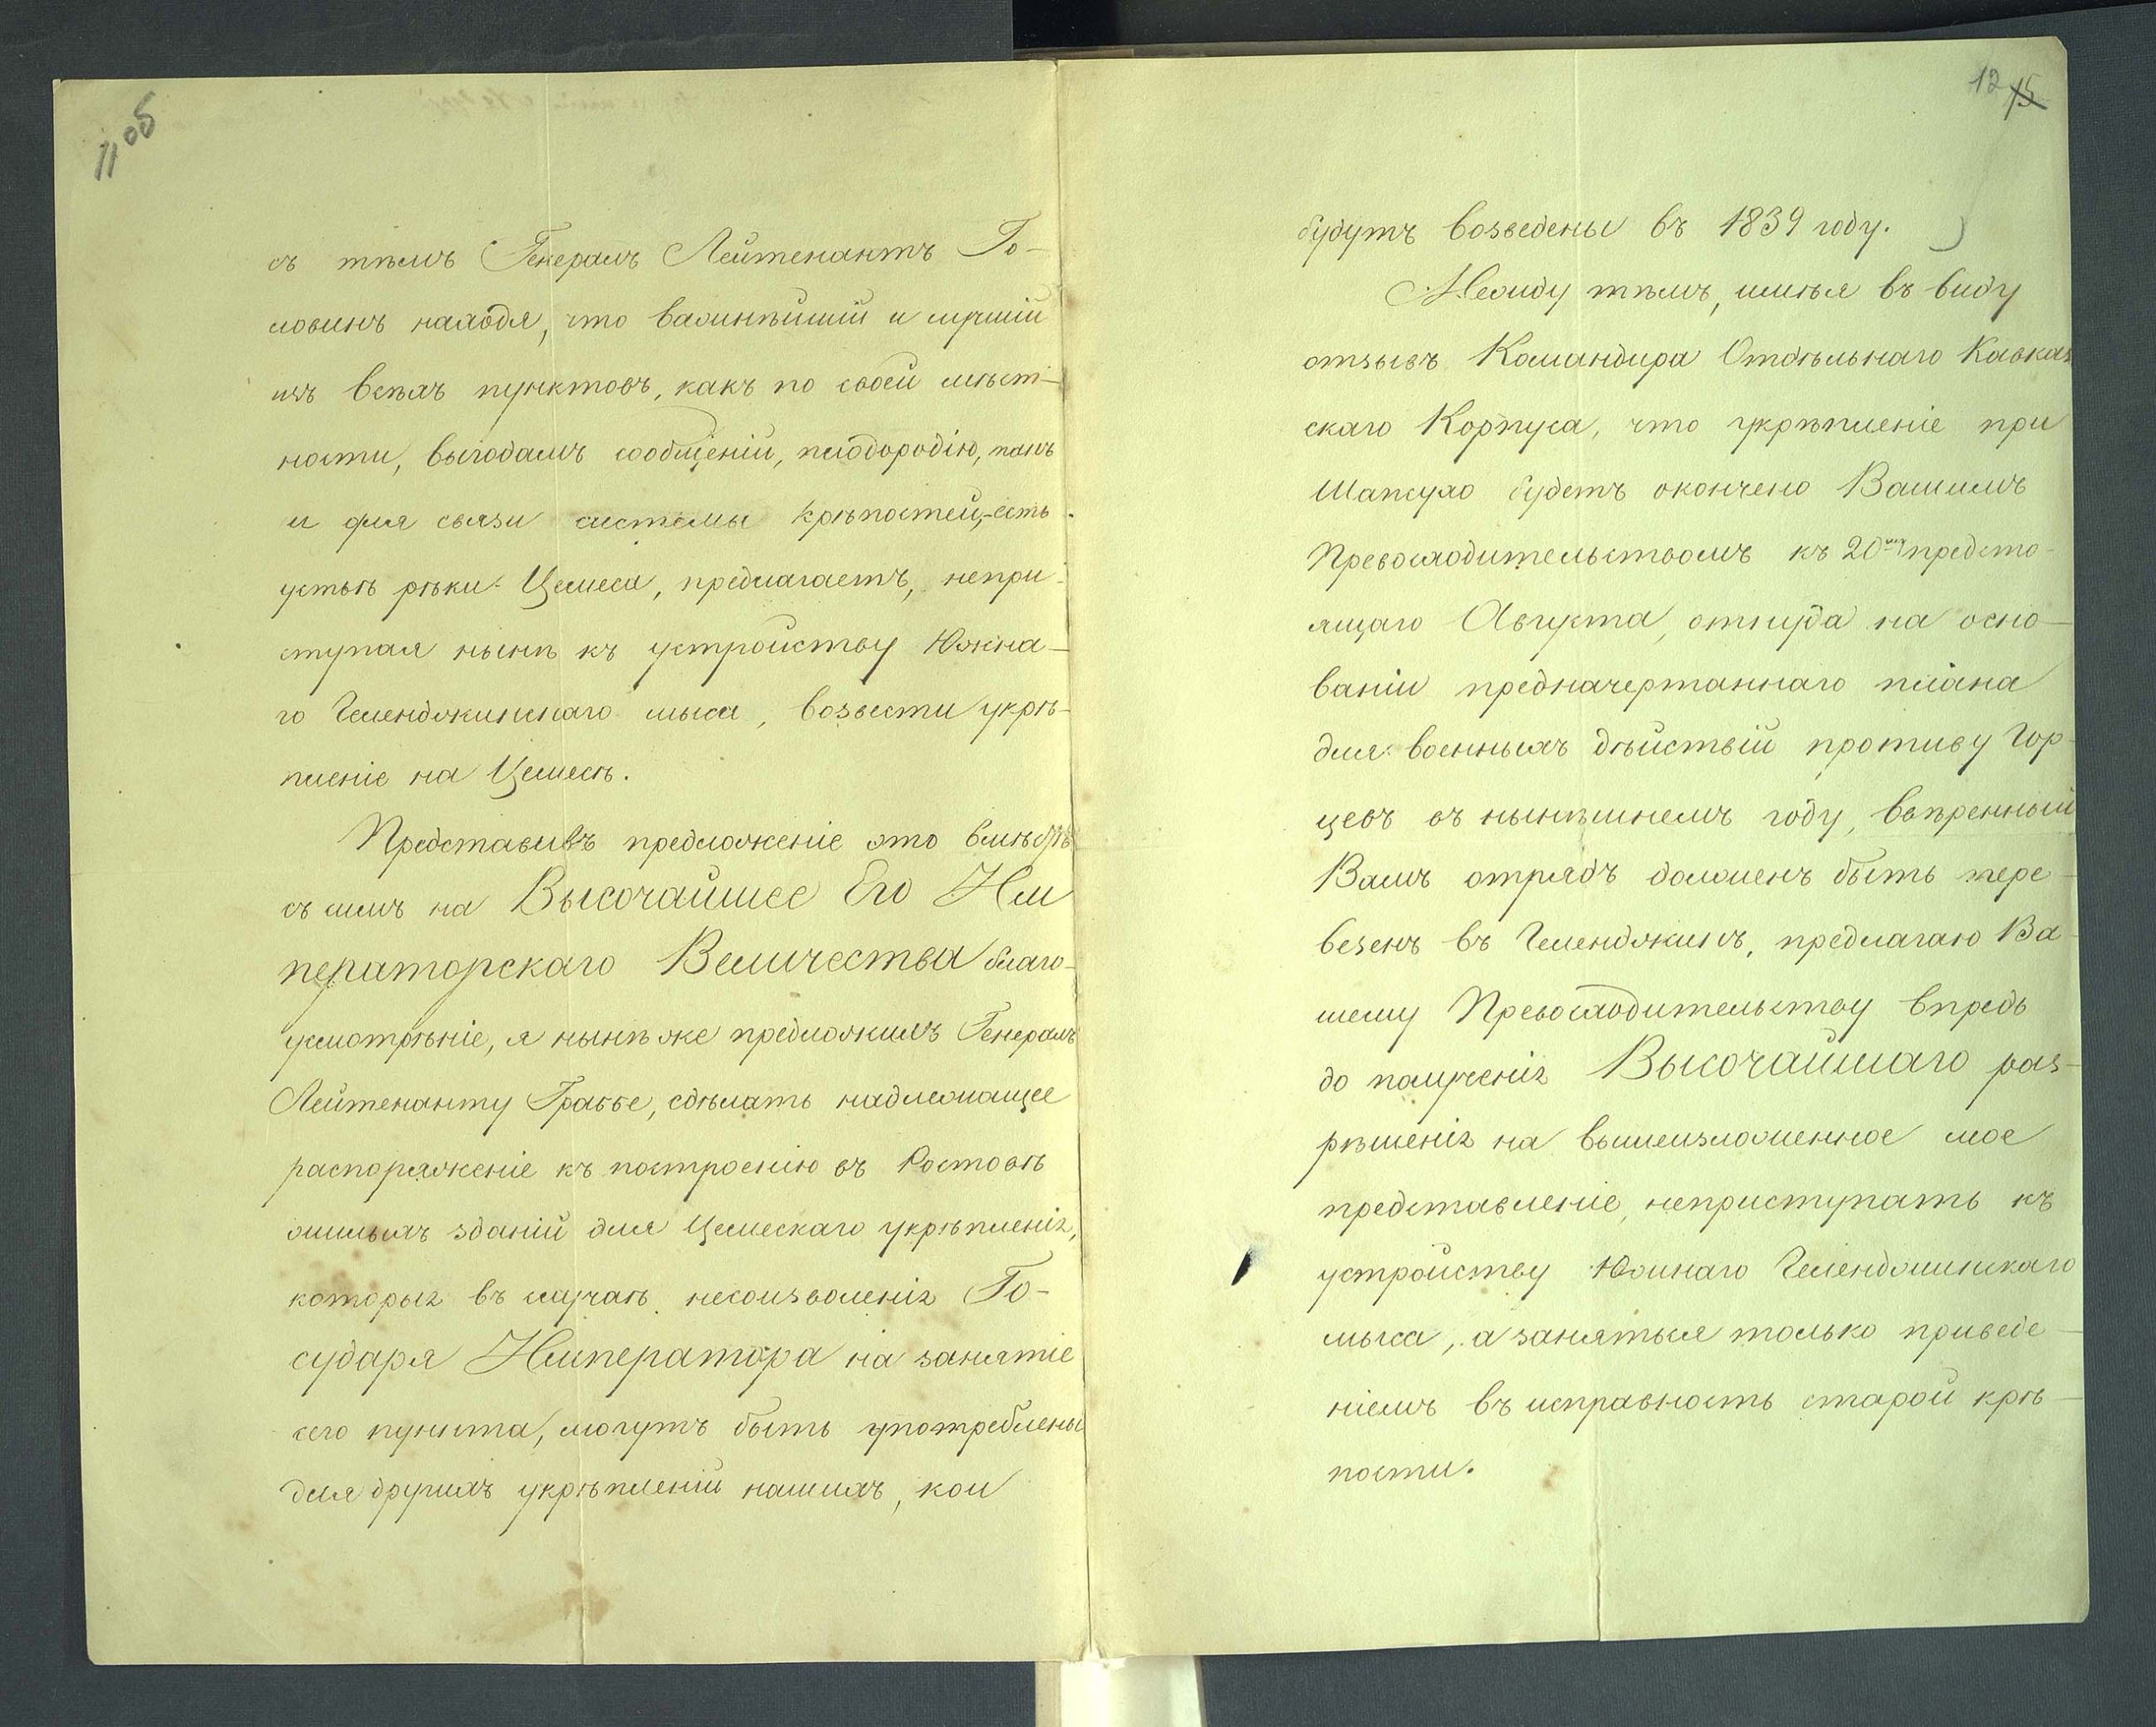 11об
съ тѣмъ Генералъ Лейтенантъ Го-
ловинъ находя, что важнѣйшій и лучшій
изъ всѣхъ пунктовъ, какъ по своей мѣст-
ности, выгодамъ сообщеній, плодородію, такъ
и для связи системы крѣпостей,-есть
устье рѣки Цемеса, предлагаетъ, непри-
ступая нынѣ къ устройству Южна-
го Геленджикскаго мыса, возвести укрѣ-
пленіе на Цемесѣ.
Представивъ предложеніе это вмѣстѣ
съ симъ на Высочайшее Его Им
ператорскаго Величества благо-
усмотрѣніе, я нынѣ же предложилъ Генералъ
Лейтенанту Граббе, сдѣлать надлежащее
распоряженіе къ построенію въ Ростовѣ
жилыхъ зданій для Цемескаго укрѣпленія,
которыя въ случаѣ несоизволенія Го-
сударя Императора на занятіе
сего пункта, могутъ быть употреблены
для другихъ укрѣпленій нашихъ, кои
12 15
будутъ возведены въ 1839 году.
Между тѣмъ, имѣя въ виду
отзывъ Командира Отдѣльнаго Кавказ
скаго Корпуса, что укрѣпленіе при
Шапсухо будетъ окончено Вашимъ
Превосходительствомъ къ 20му предсто-
ящаго Августа, откуда на осно-
ваніи предначертаннаго плана
для военныхъ дѣйствій противу Гор-
цевъ въ нынѣшнемъ году, ввѣренный
Вамъ отрядъ долженъ быть пере-
везенъ въ Геленджикъ, предлагаю Ва-
шему Превосходительству впредь
до полученія Высочайшаго раз-
рѣшенія на вышеизложенное мое
представленіе, неприступать къ
устройству Южнаго Геленджикскаго
мыса, а заняться только приведе-
ніемъ въ исправность старой крѣ-
пости.